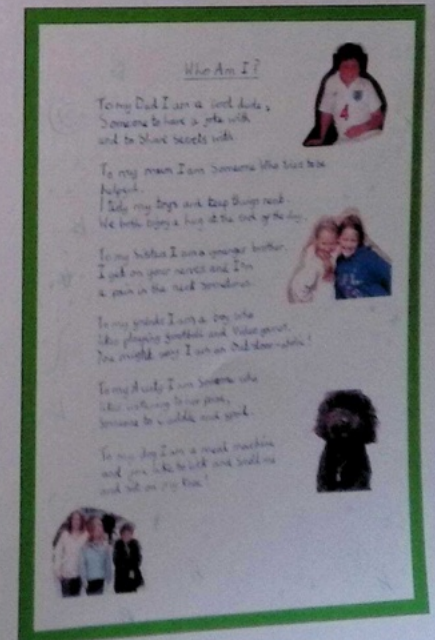 Who Am I?
To my Dad I am a cool dude,
Someone to have a joke with
and to share secrets with.
To my mum I am Someone Who tries to be
helpful.
I tidy my toys and keep things neat.
We both enjoy a hug at the end of the day.
To my sisters I am a younger brother.
I get on your nerves and I'm
a pain in the neck sometimes.
To my friends I am a boy who
likes playing football and Video games.
You might say I am an
To my I am Someone who
likes
Someone to cuddle and
To my dog I am a meal machine
and you like to lick and smell me
and sit on my knee!
4